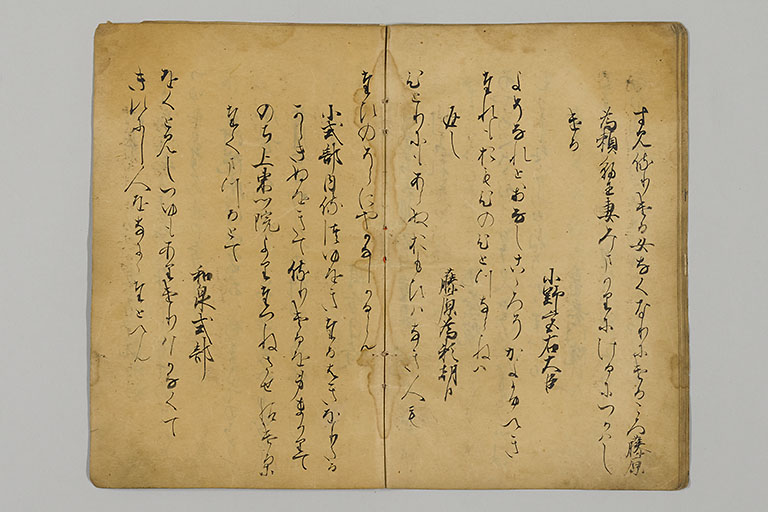 すみ侍りける女なくなりにけるころ藤原
為頼朝臣妻みまかりにけるにつかはし
ける
小野宮右大臣
よそなれとおなしこゝろそかよふへき
たれもおもひのひとつならねは
返し
藤原為頼朝臣
ひとりにもあらぬおもひはなき人も
たひのそらにやかなしかるらん
小式部内侍つゆをきたるはきをりたる
からきぬをきて侍りけるをみまかりて
のち上東門院よりたつねさせ給ける
たてまつるとて
和泉式部
をくとみしつゆもありけりはかなくて
きえにし人をなにゝたとへん